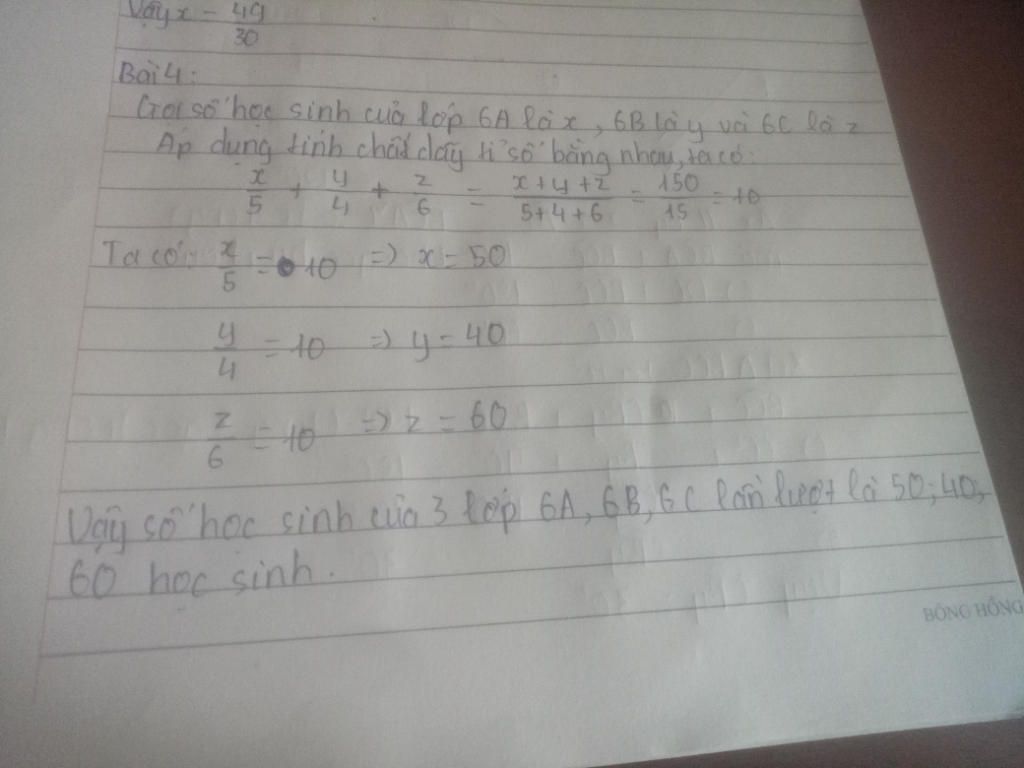 Vậy x = 49/30
Bài 4:
Gọi số học sinh của lớp 6A là x, 6B là y và 6C là z
Áp dụng tính chất dãy tỉ số bằng nhau, ta có:
x/5 + y/4 + z/6 = x+y+z/5+4+6 = 150/15 = 10
Ta có: x/5 = 10 => x = 50
y/4 = 10 => y = 40
z/6 = 10 => z = 60
Vậy số học sinh của 3 lớp 6A, 6B, 6C lần lượt là 50; 40,
60 học sinh.
BÔNG HỒNG